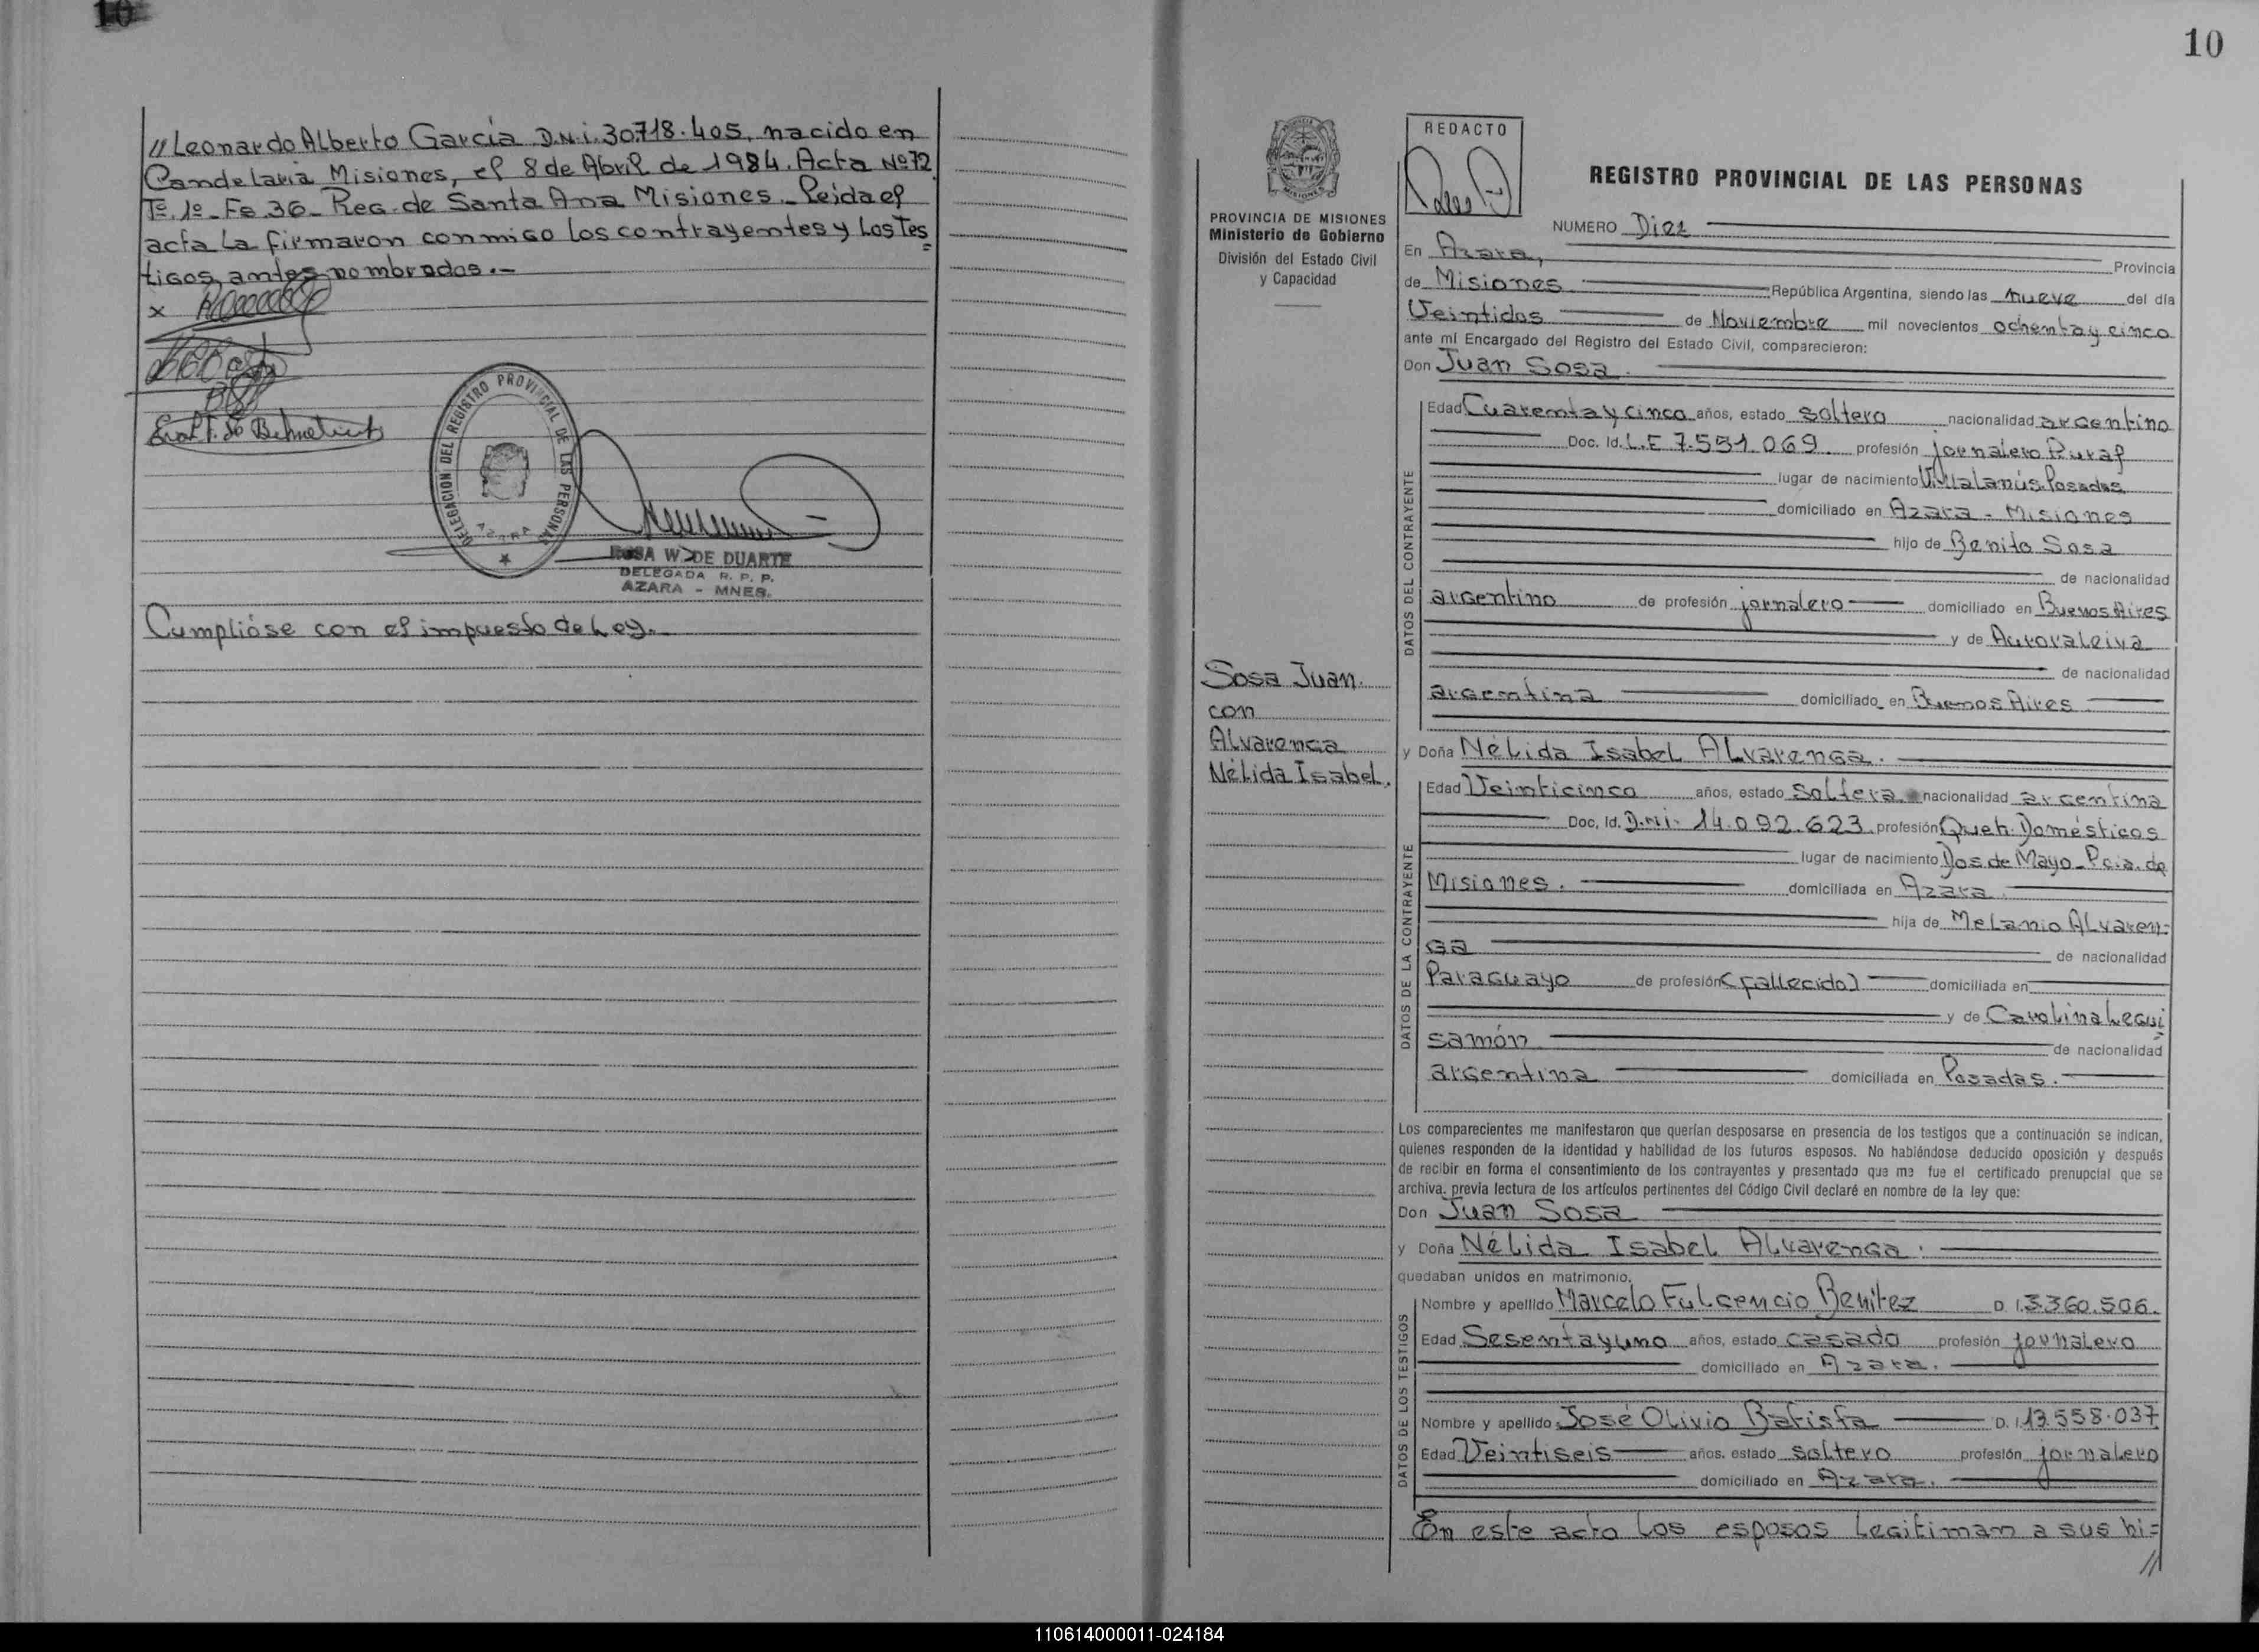 10
// Leonardo Alberto García D.N.i. 30.718.405, nacido en
Candelaria Misiones, el 8 de Abril de 1984. Acta Nº 72
Tº 1º - Fº 36 - Reg. de Santa Ana Misiones. Leída el
acta la firmaron conmigo los contrayentes y los Tes=
tigos antes nombrados.-
x
DELEGACION DEL REGISTRO PROVINCIAL DE LAS PERSONAS
AZARA
ROSA W. DE DUARTE
DELEGADA R. P. P.
AZARA - MNES.
Cumplióse con el impuesto de Ley.
10
PROVINCIA DE MISIONES
Ministerio de Gobierno
División del Estado Civil
y Capacidad
Sosa Juan.
con
Alvarenga
Nélida Isabel.
REDACTO
REGISTRO PROVINCIAL DE LAS PERSONAS
NUMERO Diez
En Azara, Provincia
de Misiones República Argentina, siendo las nueve del día
Veintidos de Noviembre mil novecientos ochenta y cinco
ante mí Encargado del Registro del Estado Civil, comparecieron:
Don Juan Sosa.
DATOS DEL CONTRAYENTE
Edad Cuarenta y cinco años, estado soltero nacionalidad argentino
Doc. Id. L.E 7.551.069. profesión jornalero Rural
lugar de nacimiento Villa Lanús. Posadas
domiciliado en Azara - Misiones
hijo de Benito Sosa
de nacionalidad
argentino de profesión jornalero domiciliado en Buenos Aires
y de Aurora Leiva
de nacionalidad
argentina domiciliado en Buenos Aires
y Doña Nélida Isabel Alvarenga.
DATOS DE LA CONTRAYENTE
Edad Veinticinco años, estado soltera nacionalidad argentina
Doc. Id. D.Ni. 14.092.623. profesión Queh. Domésticos
lugar de nacimiento Dos de Mayo - Pcia. de
Misiones. domiciliada en Azara.
hija de Melanio Alvaren=
ga
de nacionalidad
Paraguayo de profesión (fallecido) domiciliada en
y de Carolina Legui
samón de nacionalidad
argentina domiciliada en Posadas.
Los comparecientes me manifestaron que querían desposarse en presencia de los testigos que a continuación se indican,
quienes responden de la identidad y habilidad de los futuros esposos. No habiéndose deducido oposición y después
de recibir en forma el consentimiento de los contrayentes y presentado que me fue el certificado prenupcial que se
archiva, previa lectura de los artículos pertinentes del Código Civil declaré en nombre de la ley que:
Don Juan Sosa
y Doña Nélida Isabel Alvarenga.
quedaban unidos en matrimonio.
DATOS DE LOS TESTIGOS
Nombre y apellido Marcelo Fulgencio Benitez D. I. 3.360.506.
Edad Sesenta y uno años, estado casado profesión jornalero
domiciliado en Azara.
Nombre y apellido José Olivio Batista D. I. 13.558.037
Edad Veintiseis años, estado soltero profesión jornalero
domiciliado en Azara.
En este acto los esposos legitiman a sus hi=
//
110614000011-024184